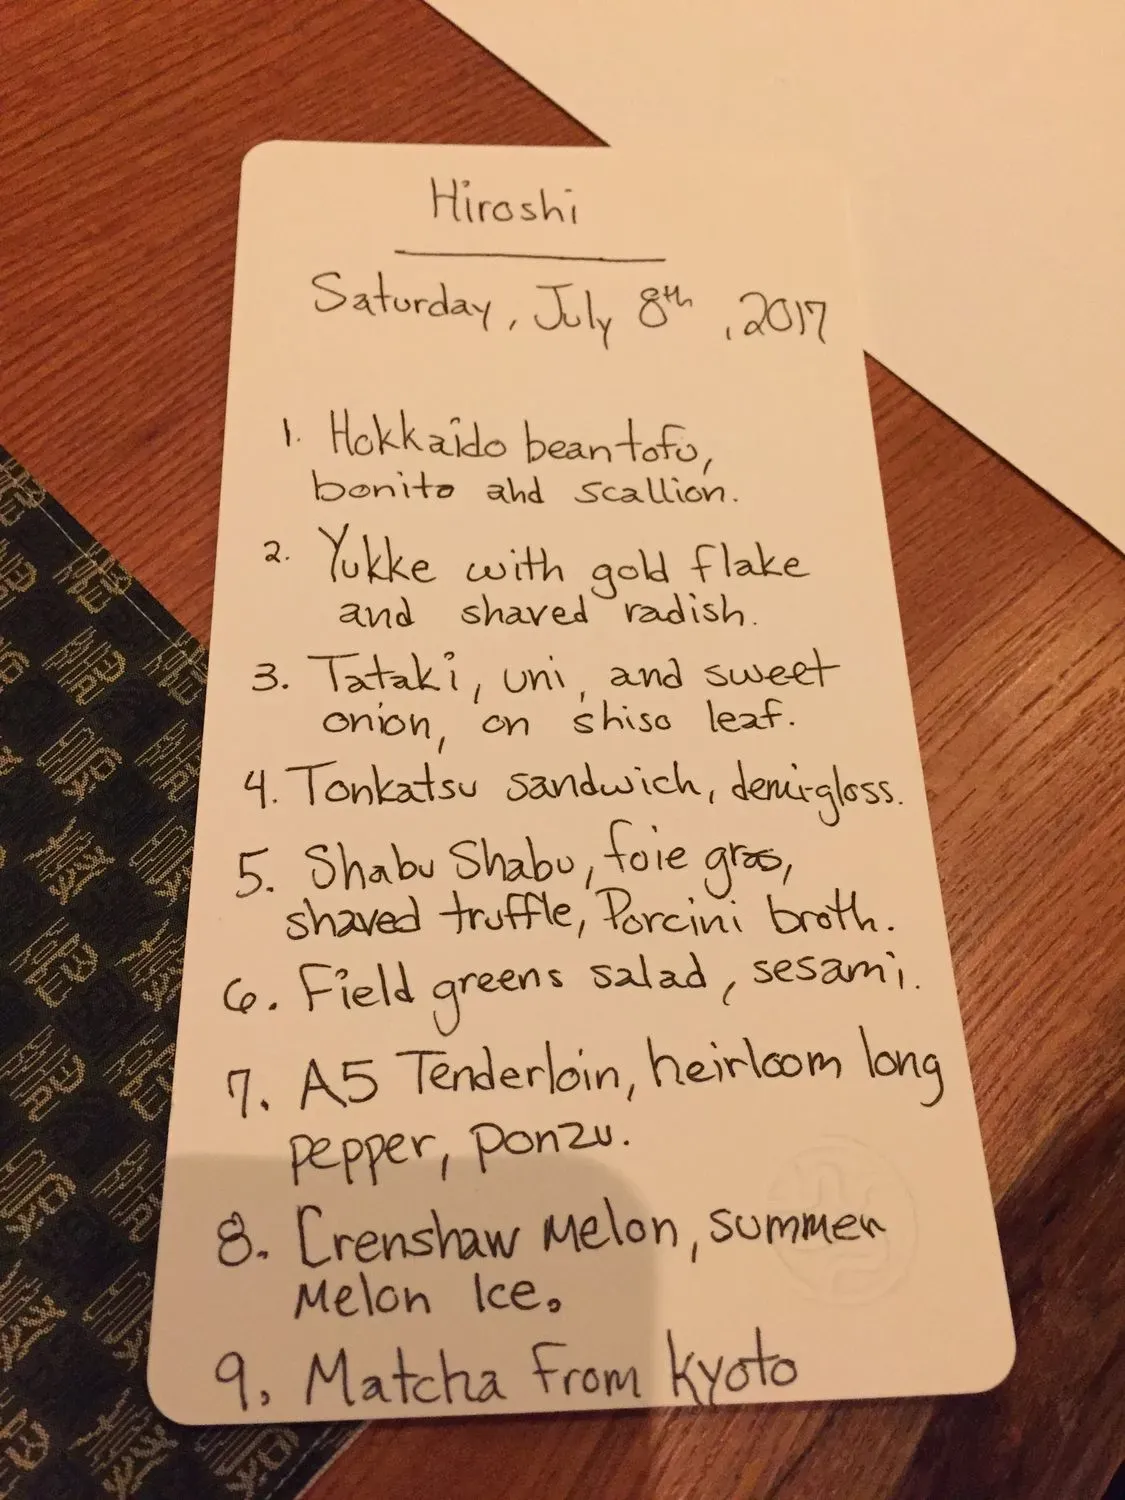 Hiroshi
Saturday, July 8th, 2017
1. Hokkaido bean tofu,
bonito and scallion.
2. Yukke with gold flake
and shaved radish.
3. Tataki, uni, and sweet
onion, on shiso leaf.
4. Tonkatsu sandwich, demi-gloss.
5. Shabu Shabu, foie gras,
shaved truffle, Porcini broth.
6. Field greens salad, sesami.
7. A5 Tenderloin, heirloom long
pepper, ponzu.
8. Crenshaw Melon, summer
Melon Ice.
9. Matcha From Kyoto